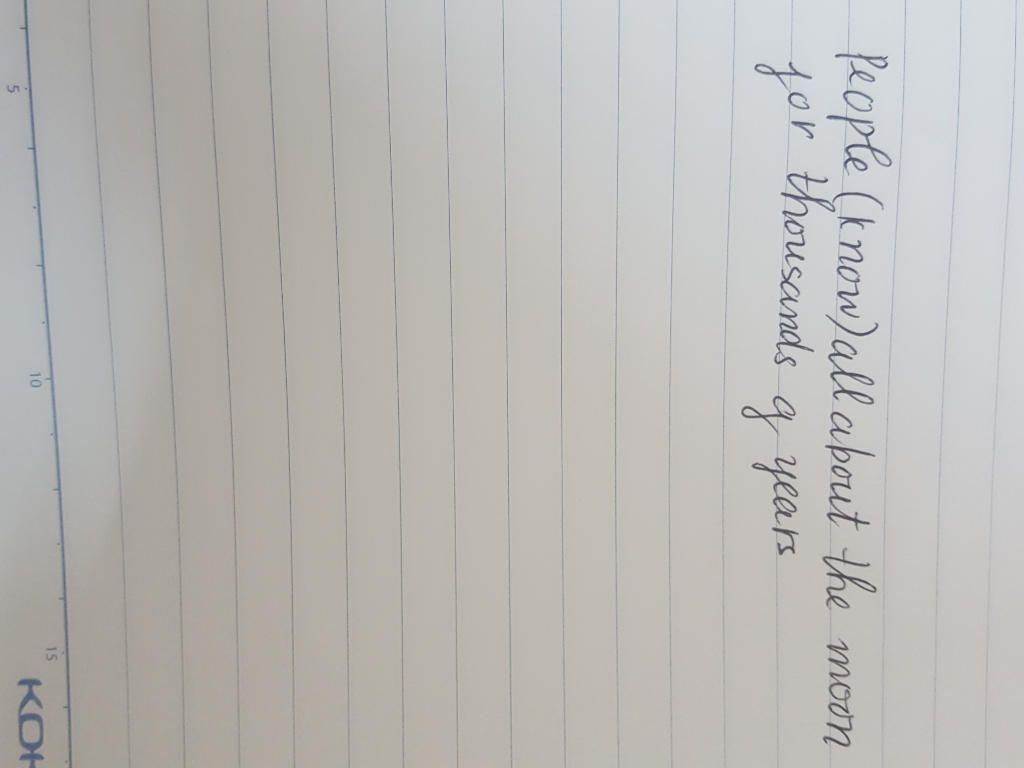 People (know) all about the moon
for thousands of years
5
10
15
KOH